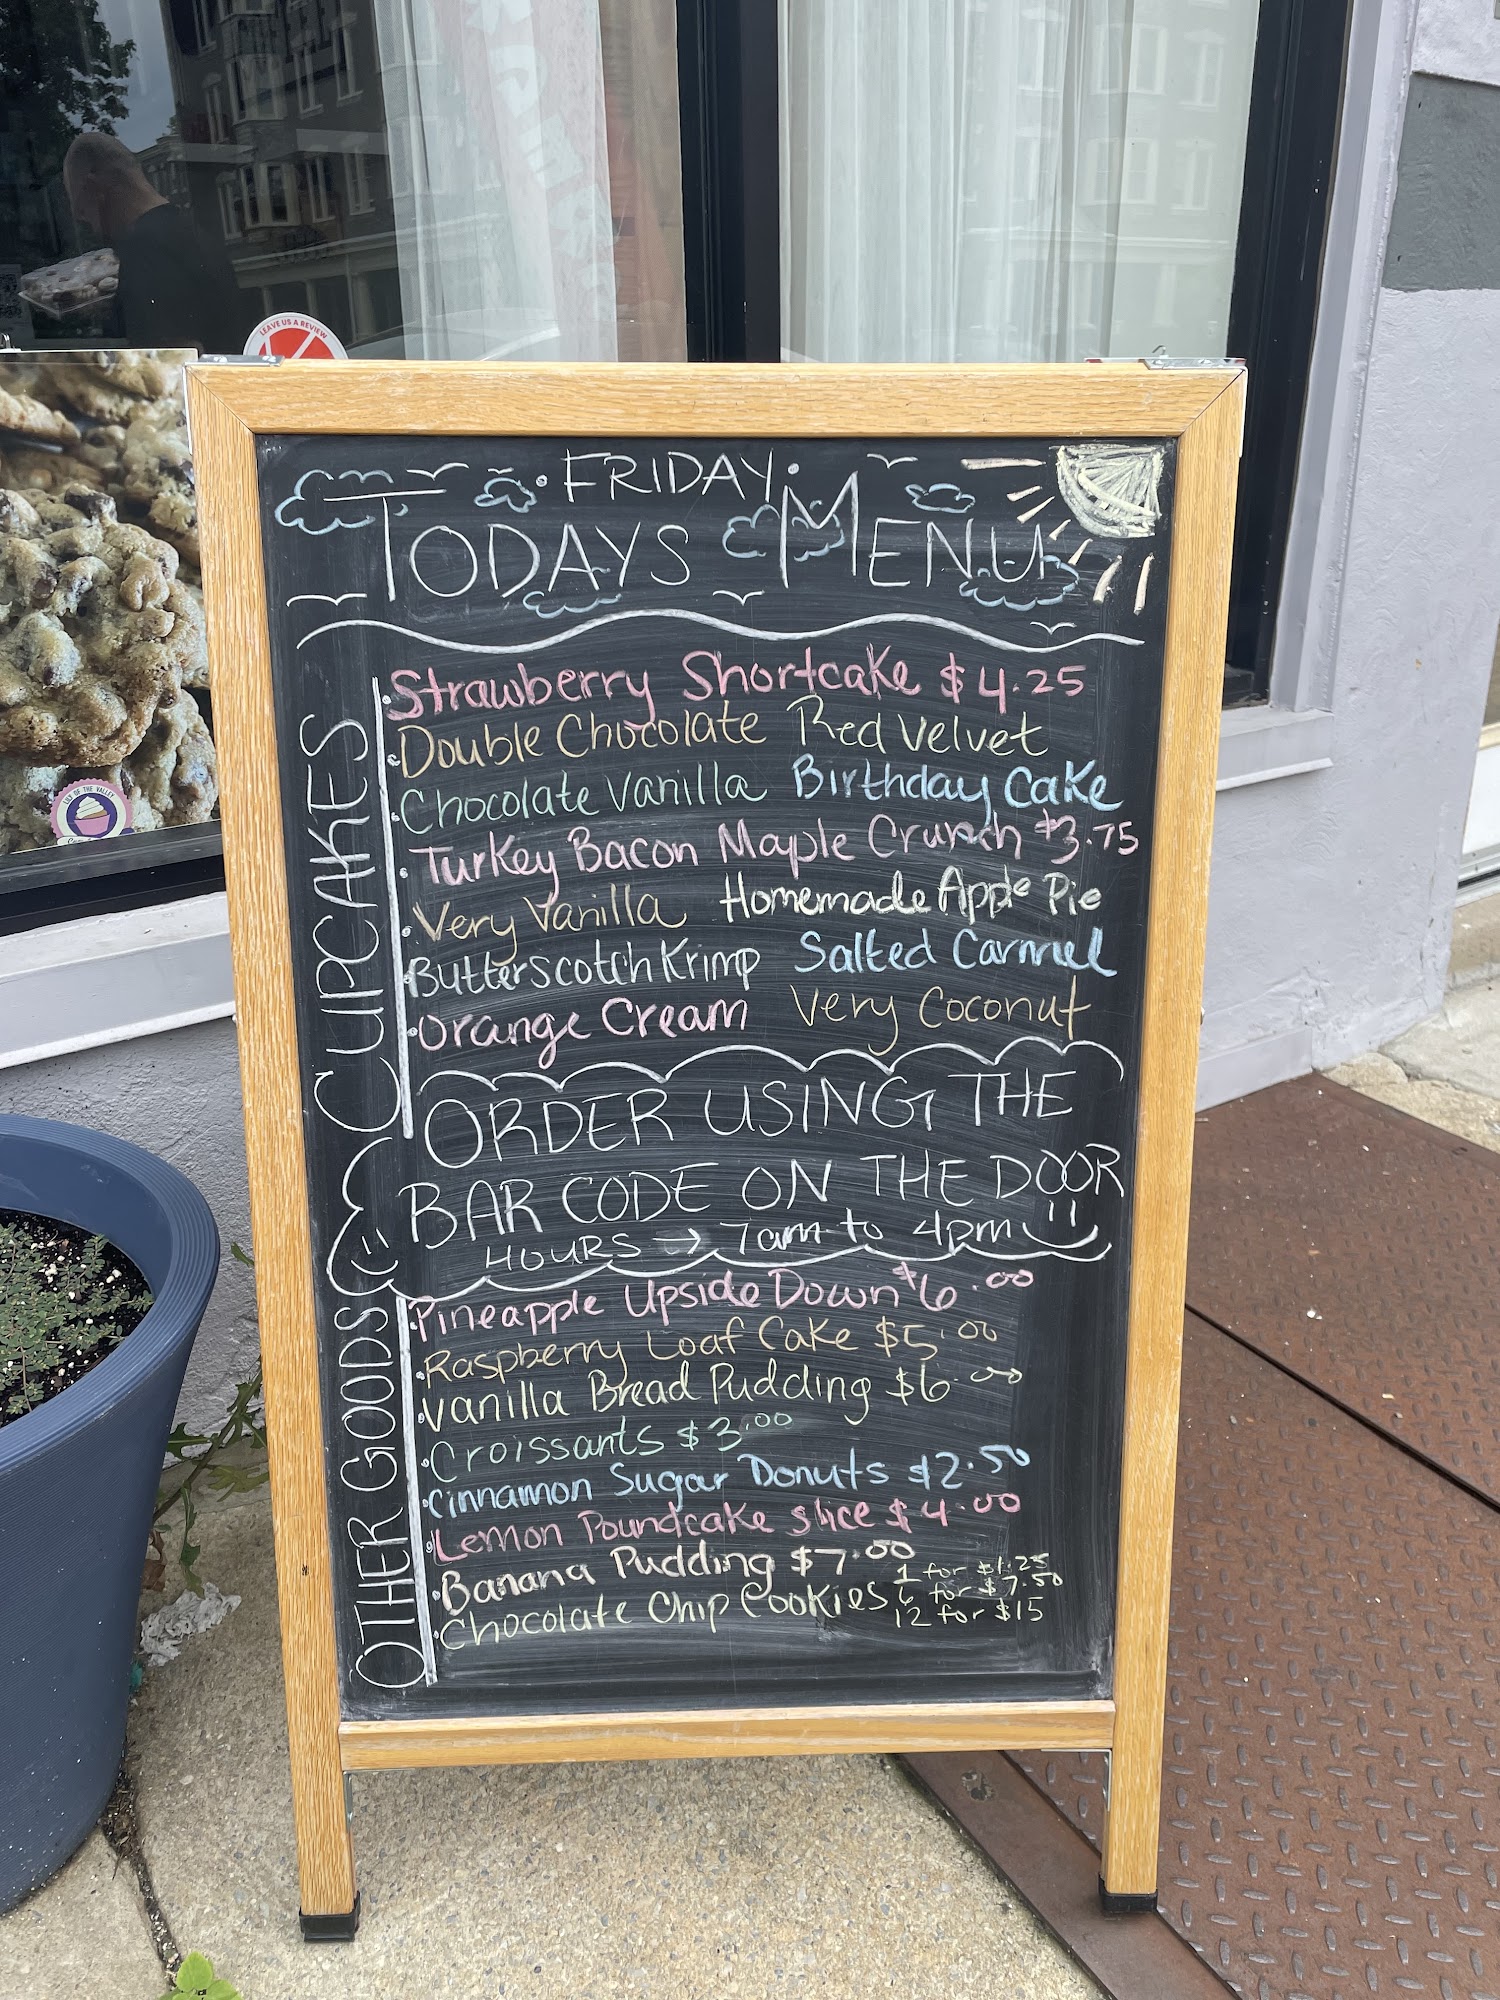 LEAVE US A REVIEW
· FRIDAY ·
TODAYS MENU
CUPCAKES
Strawberry Shortcake $4.25
Double Chocolate Red Velvet
Chocolate Vanilla Birthday Cake
Turkey Bacon Maple Crunch $3.75
Very Vanilla Homemade Apple Pie
Butterscotch Krimp Salted Carmel
Orange Cream Very Coconut
ORDER USING THE
BAR CODE ON THE DOOR
HOURS → 7am to 4pm
OTHER GOODS
Pineapple Upside Down $6.00
Raspberry Loaf Cake $5.00
Vanilla Bread Pudding $6.00
Croissants $3.00
Cinnamon Sugar Donuts $2.50
Lemon Poundcake slice $4.00
Banana Pudding $7.00
Chocolate Chip Cookies
1 for $1.25
6 for $7.50
12 for $15
LILY OF THE VALLEY